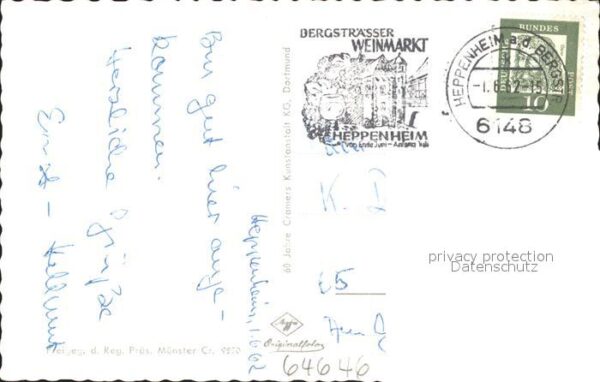 Heppenheim, 1.6.62
Bin gut hier ange-
kommen.
Herzliche Grüße
Ernst - Hellmut
60 Jahre Cramers Kunstanstalt KG, Dortmund
BERGSTRÄSSER
WEINMARKT
HEPPENHEIM
HEPPENHEIM a.d. BERGSTR
-1.6.62-15
6148
BUNDES
10
K. D
privacy protection
Datenschutz
Agfa
Originalfoto
Freigeg. d. Reg. Präs. Münster Cr. 9570
64646